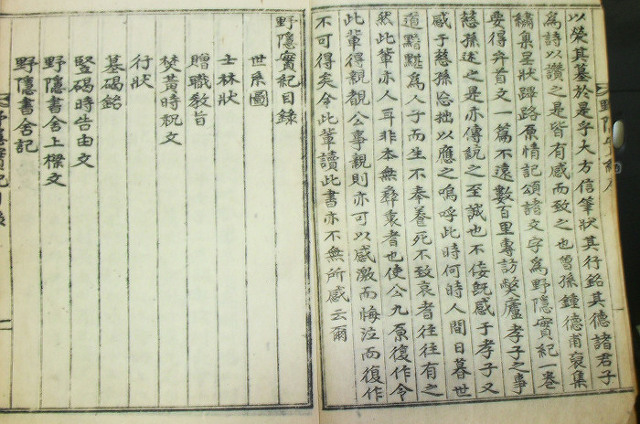 以榮其墓於是乎大方信筆狀其行銘其德諸君子
爲詩以讚之是皆有感而致之也曾孫鍾德甫裒集
繡集呈狀蹕路原情記頌諸文字爲野隱實紀一卷
要得弁首文一篇不遠數百里專訪弊廬孝子之事
慈孫述之是亦傳說之至誠也不佞旣感于孝子又
感于慈孫忘拙以應之嗚呼此時何時人間日暮世
道黯黮爲人子而生不奉養死不致哀者往往有之
然此輩亦人耳非本無彝衷者也使公九原復作令
此輩得親觀公事親則亦可以感激而悔泣而復作
不可得矣令此輩讀此書亦不無所感云爾
野隱實紀目錄
世系圖
士林狀
贈職敎旨
焚黃時祝文
行狀
墓碣銘
竪碣時告由文
野隱書舍上樑文
野隱書舍記